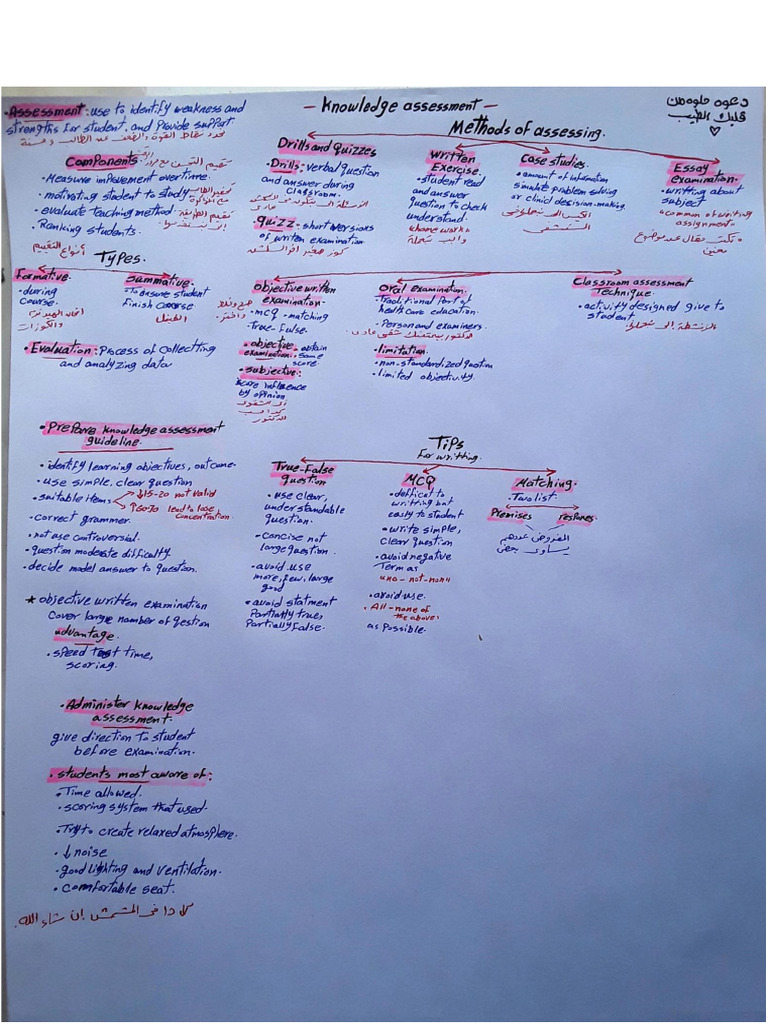 - Knowledge assessment -
دعوه حلوه من
قلبك الطيب
• Assessment: use to identify weakness and
strengths for student, and Provide support
Components:
• Measure improvement overtime.
• motivating student to study
• evaluate teaching method
• Ranking students.
أنواع التقييم
Types.
Formative.
• during
course.
Summative.
• To ensure student
Finish course
الفينال
• Evaluation: Process of collectting
and analyzing data
Methods of assessing.
Drills and Quizzes
• Drills: verbal question
and answer during
classroom.
quizz: short versions
of writen examination
Written
Exercise.
• student read
and answer
question to check
understand.
<home work>
Case studies.
• amount of information
simulate problem solving
or clinic decision-making
Essay
examination.
• writting about
subject
"common of writing
assignment."
objective written
examination.
• mcq - matching
True - False.
• objective
examination:
obtain
same
score.
• subjective:
score influence
by opinion
الدكتور
Oral examination.
• Traditional Part of
health care education.
• Person and examiners.
• limitation.
• non-standardized question
• limited objectivity.
Classroom assessment
Technique.
• activity designed give to
student
• Prepare knowledge assessment
guideline.
• identify learning objectives, outcome.
• use simple. clear question
• suitable items
↓15-20 not valid
↑60-70 lead to lose
concentration.
• correct grammer.
• not use controversal.
• question moderate difficulty.
• decide model answer to question.
★ objective written examination
cover large number of qestion
advantage.
• speed test time,
scoring.
• Administer knowledge
assessment.
give direction to student
before examination.
• students most aware of:
• Time allowed.
• scoring system that used.
• Try to create relaxed atmosphere.
• ↓ noise
• good lighting and ventilation.
• comfortable seat.
كل دا في المشمش إن شاء الله.
Tips
For writting.
True-False
question
• use clear,
understandable
question.
• concise not
large question.
• avoid use
more, few, large
good
• avoid statment
Partially true,
Partially False.
MCQ
• deffical to
writting but
easly to student
• write simple,
clear question
• avoid negative
Term as
"no - not - non"
• avoid use.
• All - none of
the above.
as possible.
Matching.
• Two list.
Premises
الفروض عددهم
يساوي بعض